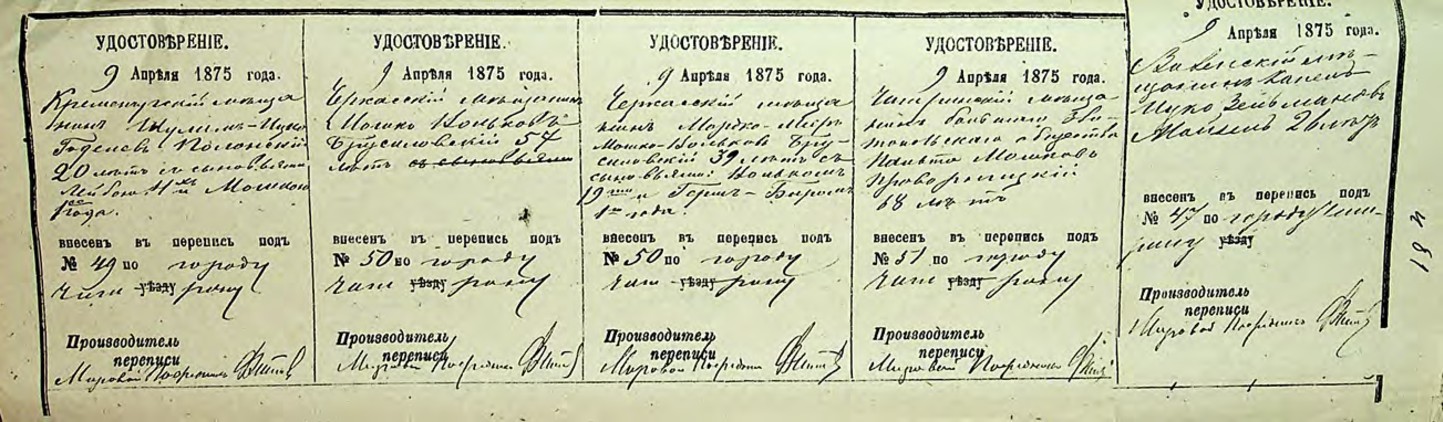 УДОСТОВѢРЕНІЕ.
9 Апрѣля 1875 года.
Кременчугскій мѣща
нинъ Шулимъ-Ицко
20 лѣтъ съ сыновьями
Лейбою Мошкою
1 года.
внесенъ въ перепись подъ
№ 49 по городу
Чиги уѣзду рину
Производитель
переписи
Мировой Посредникъ
УДОСТОВѢРЕНІЕ.
9 Апрѣля 1875 года.
Черкасскій мѣщанинъ
Мошко Вольковъ
Брусиловскій 57
лѣтъ съ сыновьями
внесенъ въ перепись подъ
№ 50 по городу
Чиги уѣзду рину
Производитель
переписи
Мировой Посредникъ
УДОСТОВѢРЕНІЕ.
9 Апрѣля 1875 года.
Черкасскій мѣща
нинъ Мордко-Меръ
Мошко-Вольковъ Бру
силовскій 39 лѣтъ съ
сыновьями: Волькомъ
19 и Герш-Беромъ
1 года.
внесенъ въ перепись подъ
№ 50 по городу
Чиги уѣзду рину
Производитель
переписи
Мировой Посредникъ
УДОСТОВѢРЕНІЕ.
9 Апрѣля 1875 года.
Чигринскій мѣща
нинъ
общества
Мошковъ
68 лѣтъ
внесенъ въ перепись подъ
№ 51 по городу
Чиги уѣзду рину
Производитель
переписи
Мировой Посредникъ
УДОСТОВѢРЕНІЕ.
9 Апрѣля 1875 года.
мѣ-
щанинъ
Ицко Зельмановъ
26 лѣтъ
внесенъ въ перепись подъ
№ 47 по городу Чиги-
рину уѣзду
Производитель
переписи
Мировой Посредникъ